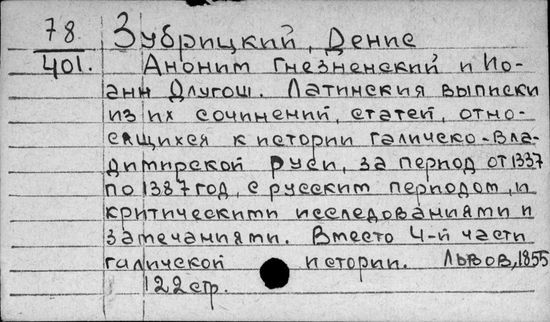 78
401.
Зубрицкий, Денис
Аноним Гнезненский и Ио-
анн Длугош. Латинския выписки
из их сочинений, статей, отно-
сящихся к истории галичско-Вла-
димирской Руси, за период от 1337
по 1387 год, с русским периодом, и
критическими исследованиями и
замечаниями. Вместо 4-й части
галичской истории. Львов, 1855
122 стр.